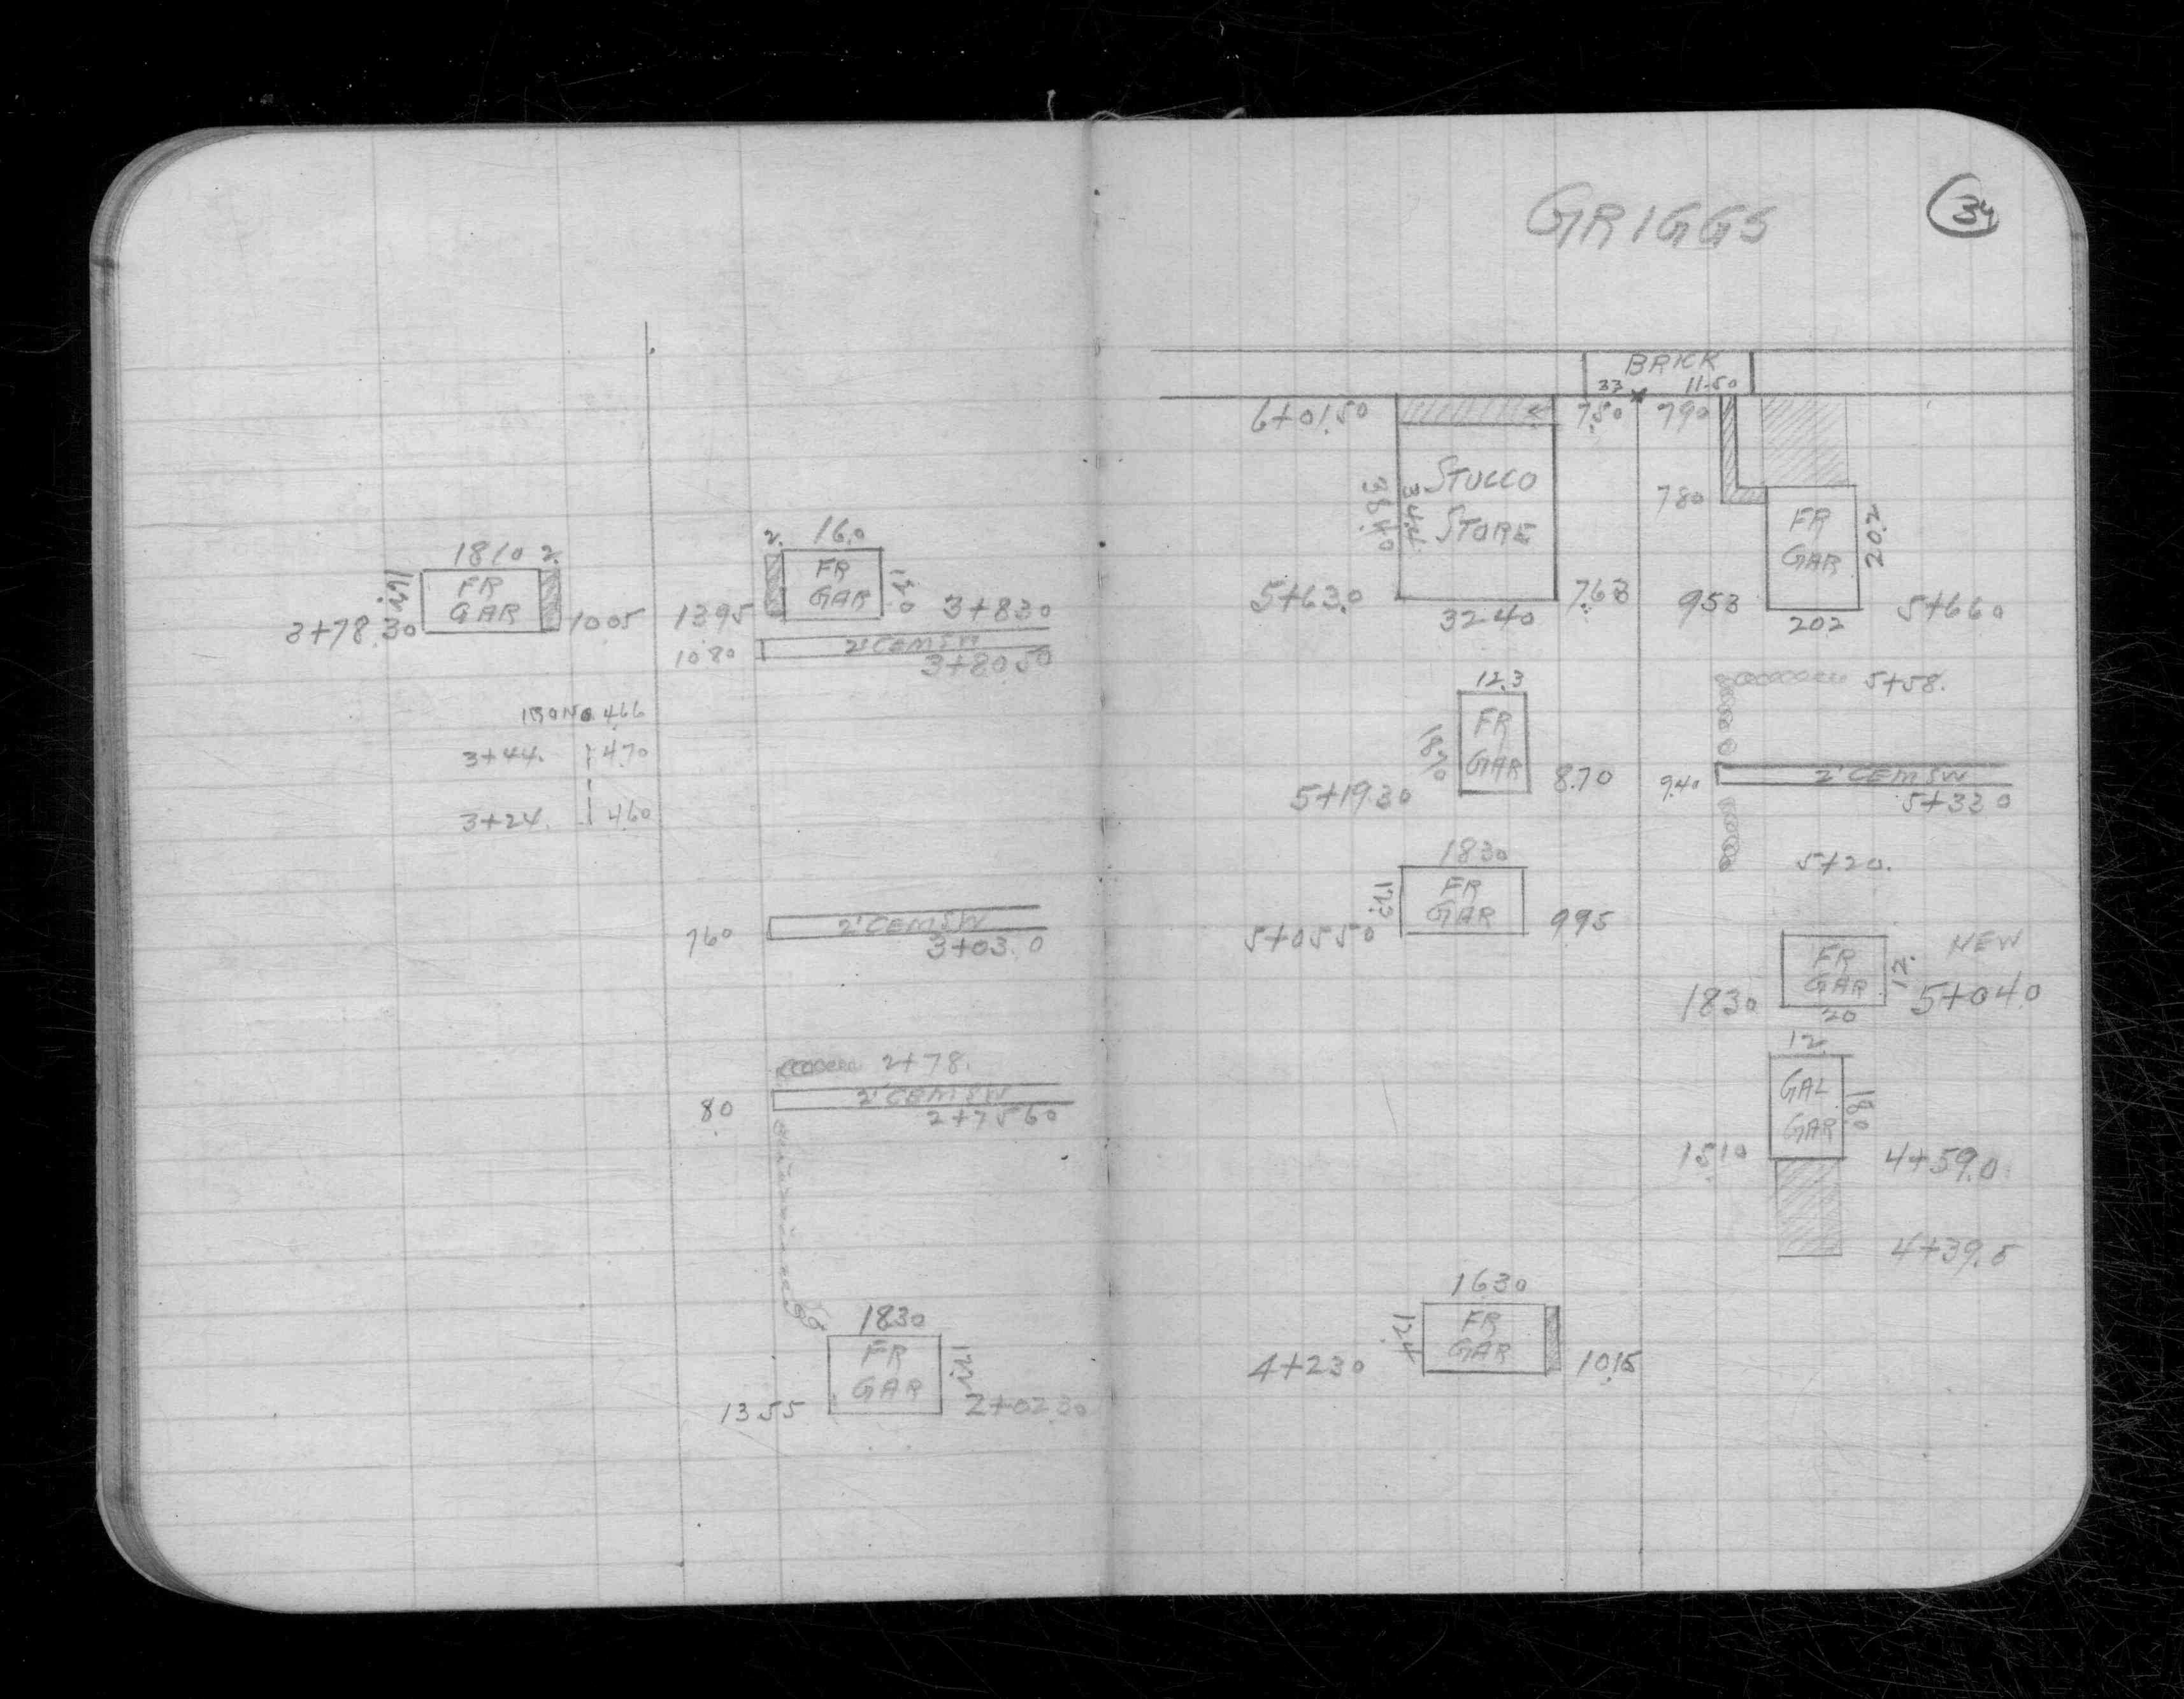 18.10 2.
FR
GAR
3+78.30 10.05
IRON 0. 4.66
3+44. 4.70
3+24. 4.60
2. 16.0
FR
GAR
13.95 3+83.0
10.80 2' CEM SW
3+80.50
7.60 2' CEM SW
3+03.0
2+78.
8.0 2' CEM SW
2+75.60
18.30
FR
GAR
13.55 2+02.30
GRIGGS 34
BRICK
.33 11.50
6+01.50 7.80 7.90
38.40 34.4
STUCCO
STORE
7.80
FR
GAR
20.2
5+63.0 7.63 9.53 5+66.0
32.40 20.2
5+58.
12.3
FR
GAR
18.70
5+19.30 8.70
9.40 2' CEM SW
5+33.0
5+20.
18.30
FR
GAR
12.3
5+05.50 9.95
NEW
FR
GAR
12.
18.30 5+04.0
20
12.
GAL
GAR
18.0
15.10 4+59.0
4+39.5
16.30
FR
GAR
12.4
4+23.0 10.15